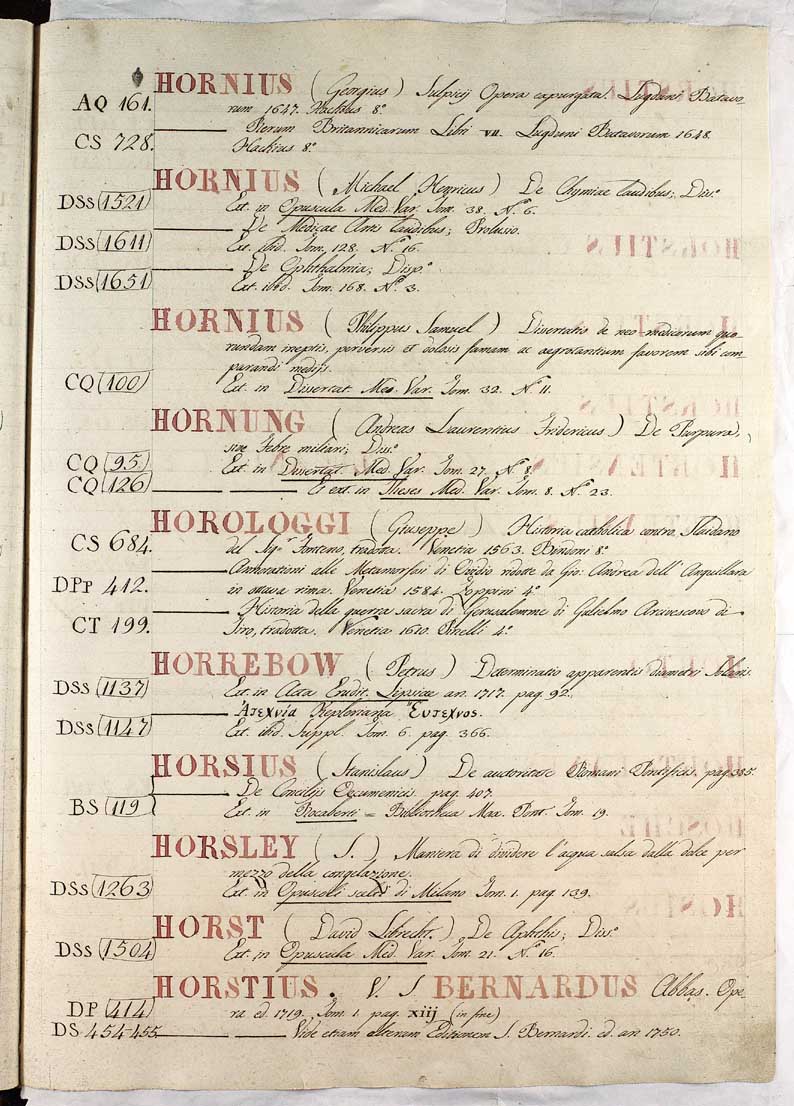 HORNIUS (Georgius) Sulpicij Opera expurgata. Lugduni Batavo
AQ 161. rum 1647. Hackius 8º
——— Rerum Britannicarum Libri VII. Lugduni Batavorum 1648.
CS 728. Hackius 8º
HORNIUS (Michael Henricus) De Chymiae Laudibus; Diss.º
DSS (1521) Ext. in Opuscula Med. Var. Tom. 38. N.º 6.
——— De Medicae Artis Laudibus; Prolusio.
DSS (1611) Ext. ibid. Tom. 128. N.º 16.
——— De Ophthalmia; Disp.º
DSS (1651) Ext. ibid. Tom. 168. N.º 3.
HORNIUS (Philippus Samuel) Dissertatio de neo-medicorum quo
rundam ineptis, perversis et dolosis famam ac aegrotantium favorem sibi com
parandi medijs.
CQ (100) Ext. in Dissertat. Med. Var. Tom. 32. N.º 11.
HORNUNG (Andreas Laurentius Fridericus) De Purpura,
sive Febre miliari; Diss.º
CQ (95.) Ext. in Dissertat. Med. Var. Tom. 27. N.º 8.
CQ (126) ——— ——— Et ext. in Theses Med. Var. Tom. 8. N.º 23.
HOROLOGGI (Giuseppe) Historia catholica contro Sleidano
CS 684. del Sig.r Fonteno, tradotta. Venetia 1563. Bordoni 8º
——— Annotationi alle Metamorfosi di Ovidio ridotte da Gio: Andrea dell' Anguillara
DPP 412. in ottava rima. Venetia 1584. 4º
——— Historia della guerra sacra di Gerusalemme di Gulielmo Arcivescovo di
CT 199. Tiro, tradotta. Venetia 1610. Pinelli 4º
HORREBOW (Petrus) Determinatio apparentis diametri Solaris.
DSS (1137) Ext. in Acta Erudit. Lipsiae an. 1717. pag. 92.
——— Ατεχνία Kepleriana Ευτεχνος.
DSS (1147) Ext. ibid. Suppl. Tom. 6. pag. 366.
HORSIUS (Stanislaus) De autoritate Romani Pontificis. pag. 385.
——— De Concilijs Oecumenicis. pag. 407.
BS (119) Ext. in Rocaberti = Bibliotheca Max. Pont. Tom. 19.
HORSLEY (S.) Maniera di dividere l'acqua salsa dalla dolce per
mezzo della congelazione.
DSS (1263) Ext. in Opuscoli scelti di Milano Tom. 1. pag. 139.
HORST (David Librecht.) De Aphthis; Diss.º
DSS (1504) Ext. in Opuscula Med. Var. Tom. 21. N.º 16.
HORSTIUS. V. S. BERNARDUS Abbas. Ope
DP (414) ra ed. 1719. Tom. 1. pag. xiij (in fine)
DS 454-455 ——— ——— Vide etiam alteram Editionem S. Bernardi. ed. an. 1750.